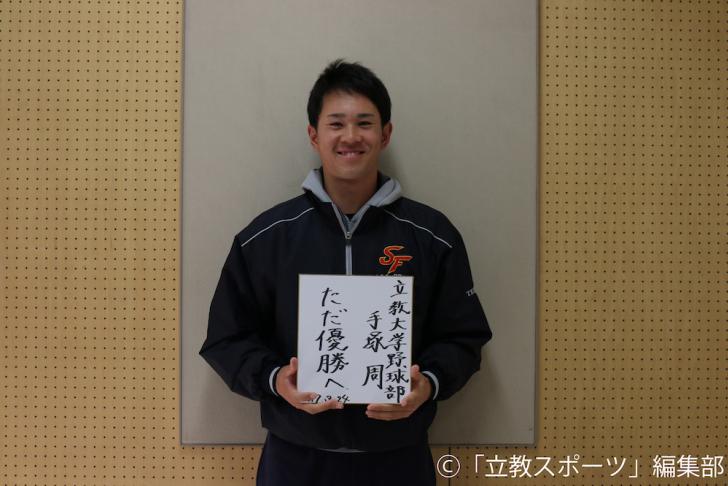 SF
立教大学野球部
手塚 周
ただ優勝へ
©「立教スポーツ」編集部